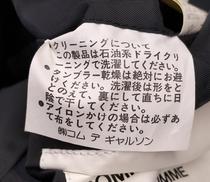 クリーニングについて
●この製品は石油系ドライクリ
ーニングで洗濯して下さい。
●タンブラー乾燥は絶対にお避
け下さい。洗濯後は形をと
とのえ、裏にして直ちに日
陰で干して下さい。
●アイロンがけの場合は必ずあ
て布をして下さい。
㈱コム デ ギャルソン
OMME